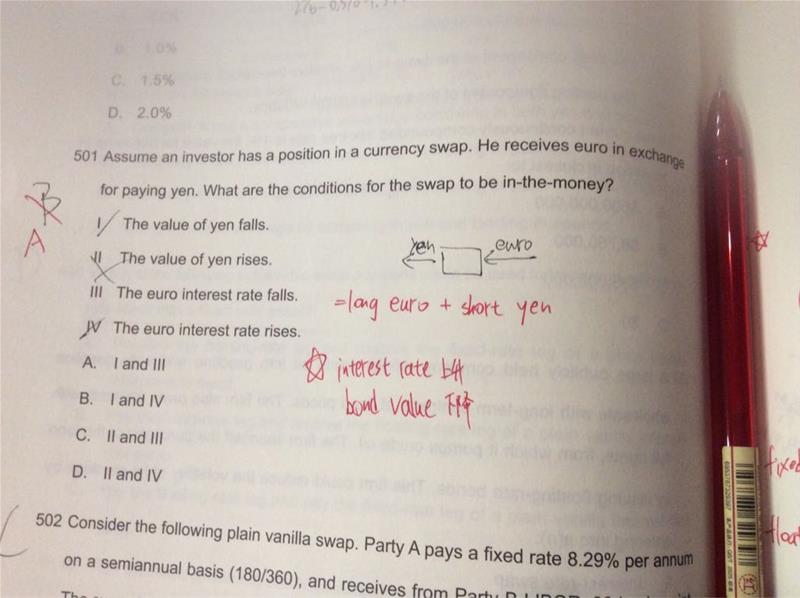 B. 1.0%
C. 1.5%
D. 2.0%
501 Assume an investor has a position in a currency swap. He receives euro in exchange
for paying yen. What are the conditions for the swap to be in-the-money?
B
A
I The value of yen falls.
II The value of yen rises.
yen euro
III The euro interest rate falls.
=long euro + short yen
IV The euro interest rate rises.
A. I and III
☆ interest rate 上升
B. I and IV
bond value 下降
C. II and III
D. II and IV
fixed
502 Consider the following plain vanilla swap. Party A pays a fixed rate 8.29% per annum
float
on a semiannual basis (180/360), and receives from Party